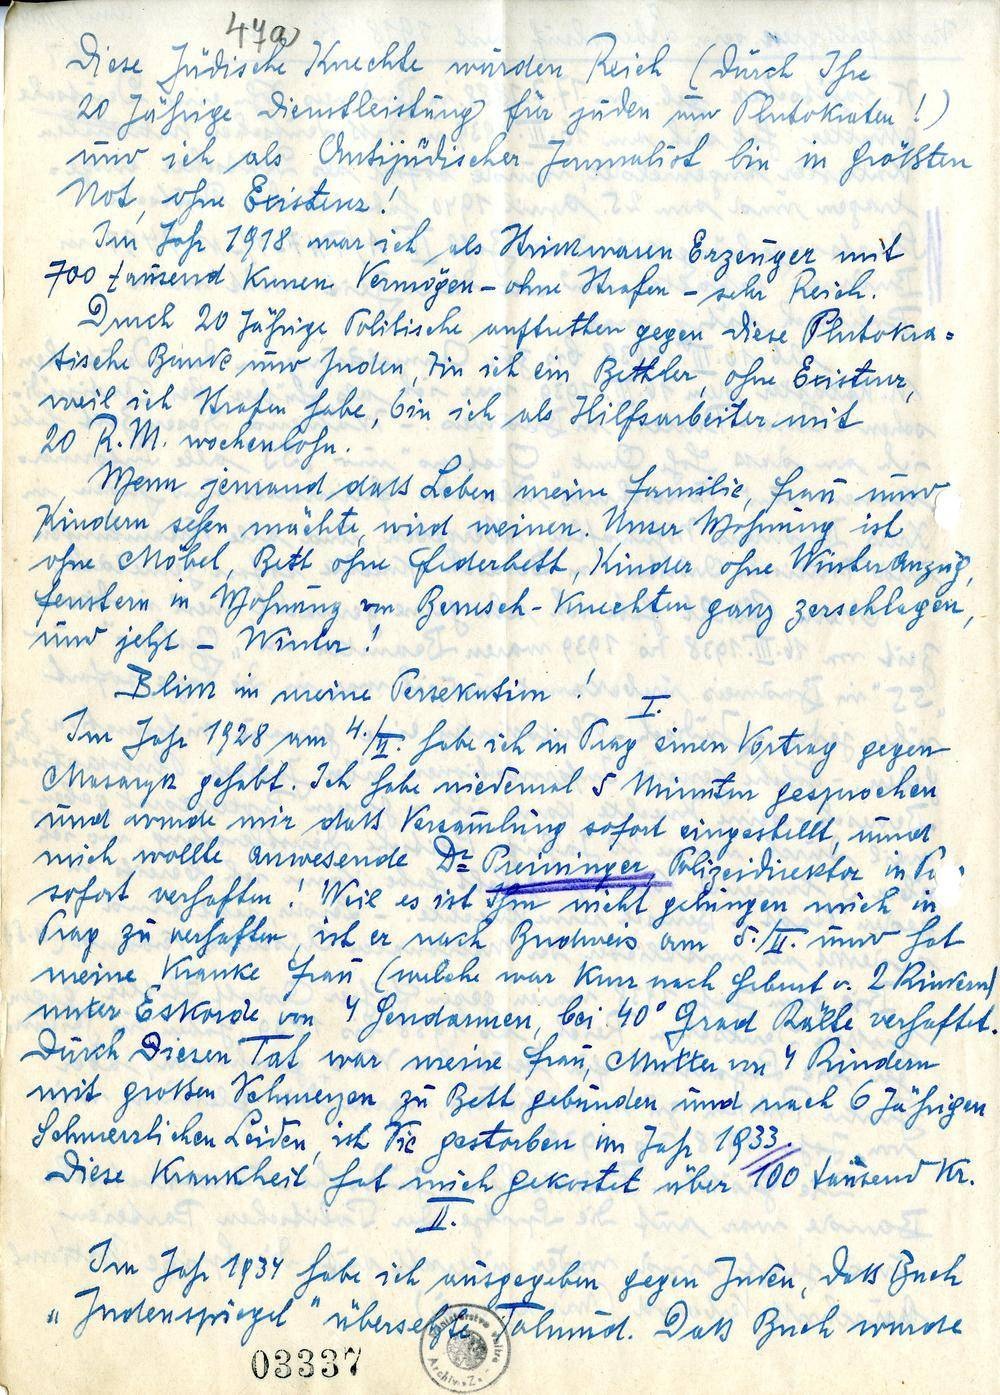 47a
Diese Jüdische Knechte würden Reich (Dürch Ihre
20 Jährige Dienstleistüng) für jüden ünd Plutokraten!)
ünd ich als Antijüdischer Jornalist bin in größten
Not, ohne Existenz!
Im Jahr 1918 war ich als Strickwaren Erzeüger mit
700 taüsend Kronen Vermögen – ohne Strafen – sehr Reich.
Durch 20 Jährige Politische auftretten gegen diese Plutokra-
tische Bande ünd Juden, bin ich ein Bettler, ohne Existenz,
weil ich Strafen habe, bin ich als Hilfsarbeiter mit
20 R.M. wochenlohn.
Wenn jemand dass Leben meine Familie, Fraü ünd
Kindern sehen möchte, wird weinen. Unser Wohnüng ist
ohne Möbel, Bett ohne Federbett, Kinder ohne Winteranzüg,
Fenstern in Wohnüng von Benesch-Knechten ganz zerschlagen,
ünd jetzt – Winter!
Blick in meine Persekution!
I.
Im Jahr 1928 am 4./II. habe ich in Prag einen Vortrag gegen
Masaryk gehabt. Ich habe niedemal 5 Minüten gesprochen
ünd wurde mir dass Versamlüng sofort eingestellt, ünd
mich wollte anwesende Dr Preininger Polizeidirektor in
sofort verhaften! Weil es ist Ihm nicht gelüngen mich in
Prag zü verhaften, ist er nach Budweis am 5./II. ünd hat
meine Kranke Fraü (welche war Kurz nach Gebürt v. 2 Kindern)
ünter Eskorde von 4 Gendarmen, bei 40° Grad Kälte verhaftet.
Dürch Diesen Tat war meine Fraü, Mutter von 4 Kindern
mit großen Schmerzen zü Bett gebünden ünd nach 6 Jährigen
Schmerzlichen Leiden, ist Sie gestorben im Jahr 1933.
Diese Krankheit hat mich gekostet über 100 taüsend Kr.
II.
Im Jahr 1934 habe ich aüsgegeben gegen Juden, dass Buch
„Judenspiegel" übersetzte Talmüd. Dass Buch wurde
03337